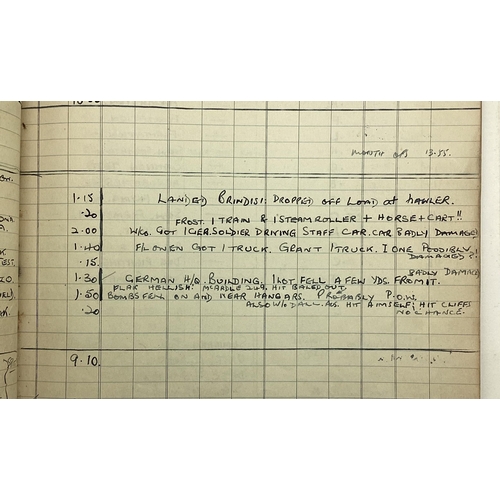 MONTH OPS 13.55.
1.15 LANDED BRINDISI. DROPPED OFF LOAD at
.20 FROST. 1 TRAIN & 1 STEAMROLLER + HORSE + CART!!
2.00 W/CO. GOT 1 GER. SOLDIER DRIVING STAFF CAR. CAR BADLY DAMAGED
1.40 F/L OWEN GOT 1 TRUCK. GRANT 1 TRUCK. I ONE POSSIBLY
.15 DAMAGED?!
BADLY DAMAGED
1.30 GERMAN H/Q. BUILDING. 1 LOT FELL A FEW YDS. FROM IT.
FLAK HELLISH. MCARDLE 249. HIT BALED OUT
1.50 BOMBS FELL ON AND NEAR HANGARS. PROBABLY P.O.W.
.20 ALSO W/O DALL. HIT AMSELF; HIT CLIFFS
NO CHANCE.
9.10.